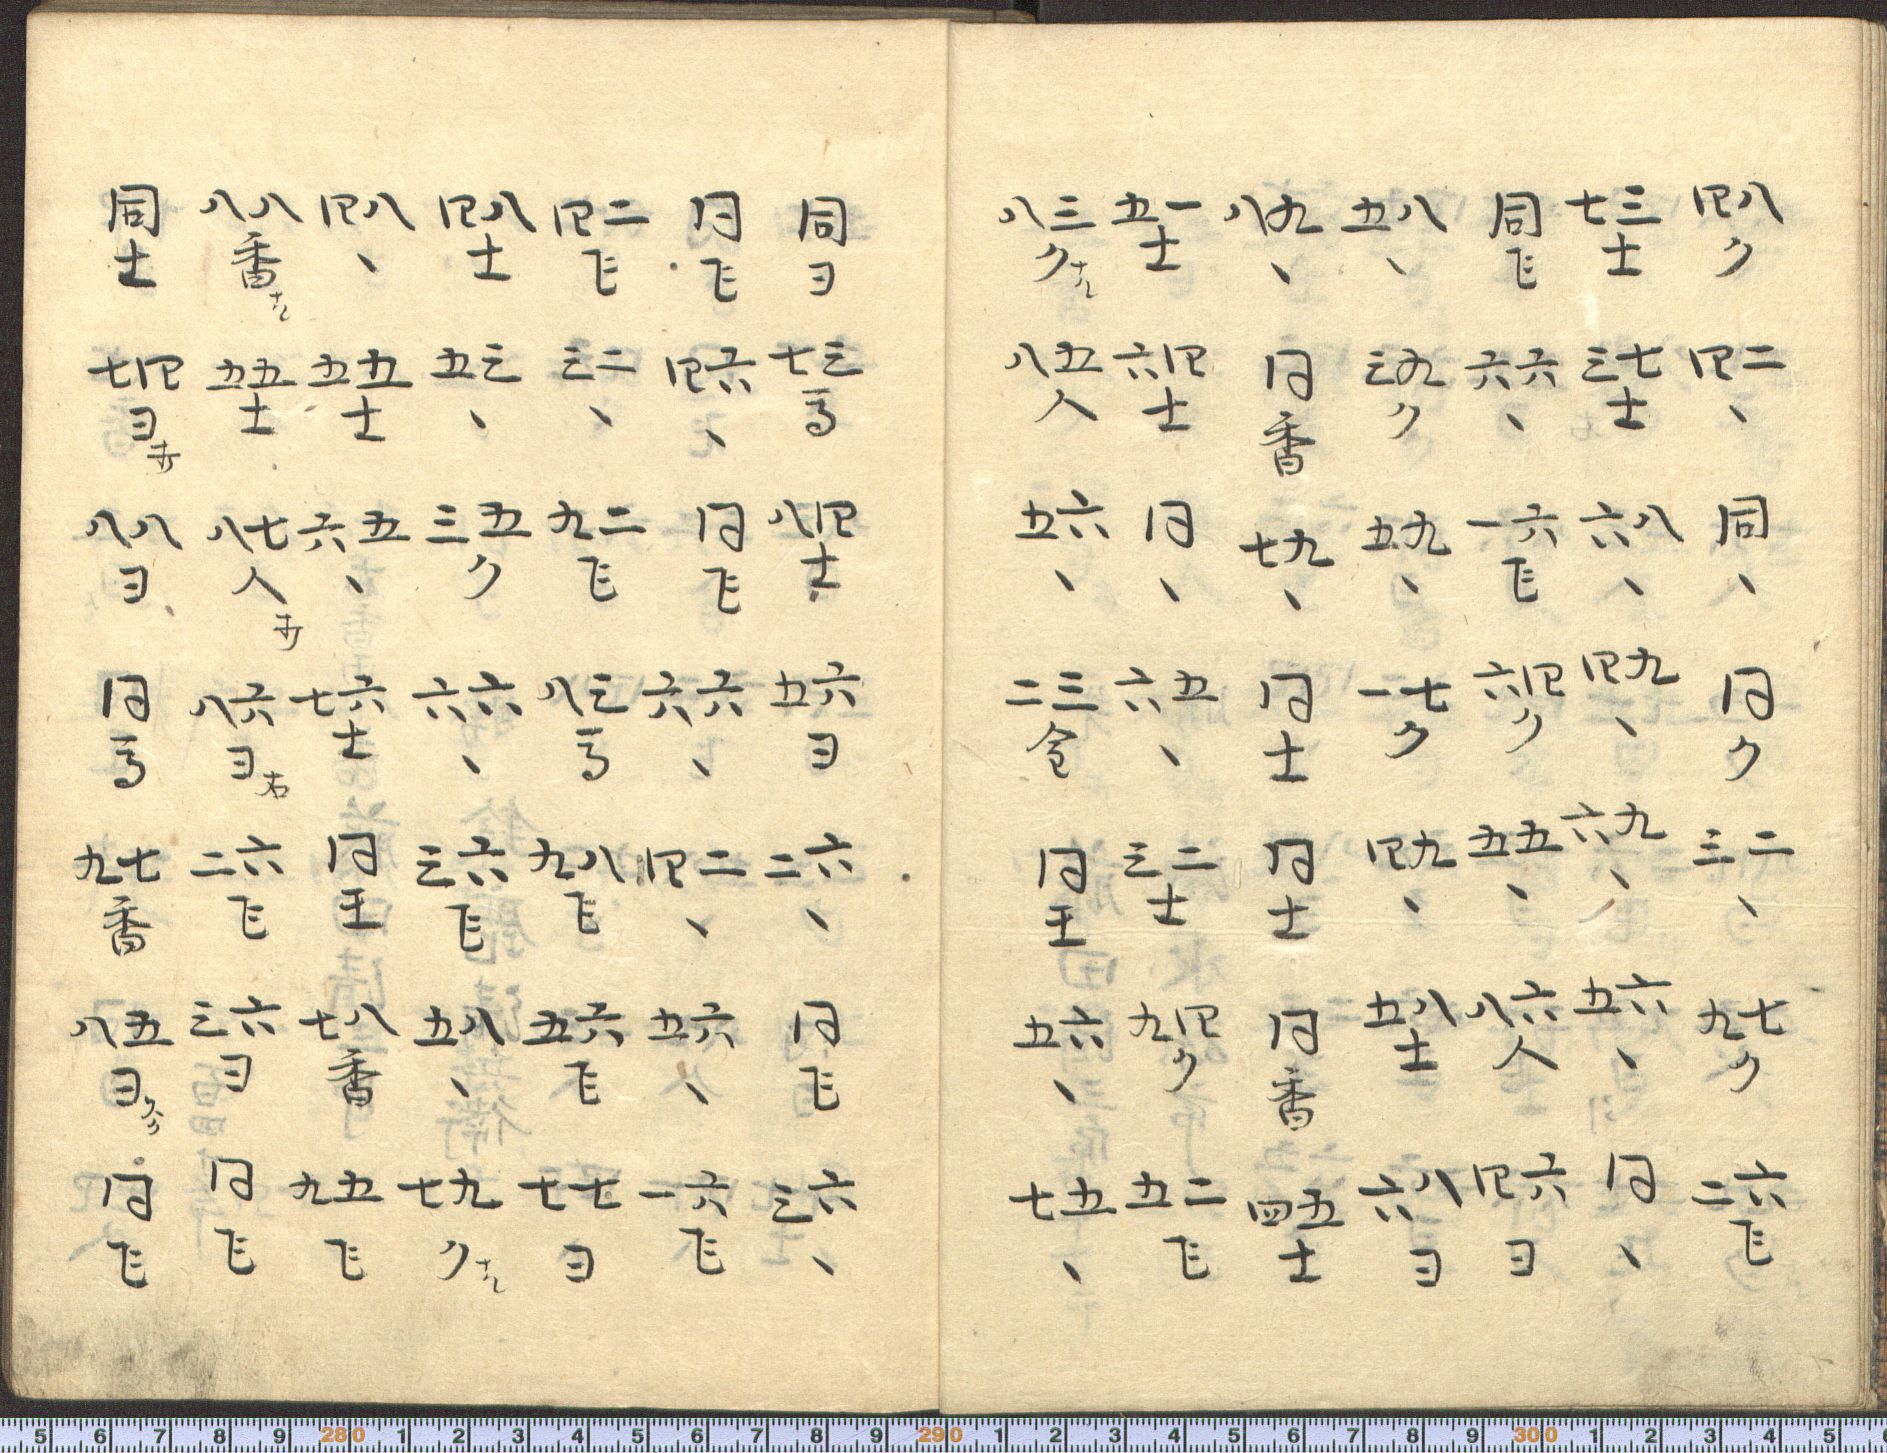 八四ク 二四、 同、 同ク 二三、 七九ク 六二飞
三七士 七三士 八六、 九四、 九六、 六五、 同、
同飞 六六、 六一飞 四六ク 五五、 六八人 六四ヨ
八五、 九三ク 九五、 七一ク 九四、 八五士 八六ヨ
九八、 同香 九七、 同士 同士 同香 五四士
一五士 四六士 同、 五六、 二三士 四九ク 二五飞
三八クナル 五八人 六五、 三二金 同王 六五、 五七、
同ヨ 三七弓 四八士 六五ヨ 六二、 同飞 六三、
同飞 六四、 同飞 六六、 二四、 六五、 六一飞
二四飞 二三、 二九飞 三八弓 八九飞 六五飞 七七ヨ
八四士 三五、 五三ク 六六、 六三飞 八五、 九七クナル
八四、 五五士 五六、 六七士 同王 八七香 五九飞
八八香ナル 五五士 七八人 六八ヨ右 六二飞 六三ヨ 同飞
同士 四七ヨ 八八ヨ 同弓 七九香 五八ヨ 同飞